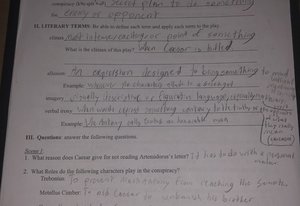 conspiracy (n) secret plan to do something
foe enemy or opponent
II. LITERARY TERMS: Be able to define each term and apply each term to the play.
climax Most intense, exciting or point of something
What is the climax of this play? When Caesar is killed.
allusion An expression designed to bring something to mind
Example:
imagery visually descriptive or figurative language
verbal irony When words express something contrary to
Example:
III. Questions: answer the following questions.
Scene 1:
1. What reason does Caesar give for not reading Artemidorus's letter? It has to do with a personal
matter
2. What Roles do the following characters play in the conspiracy?
Trebonius: To prevent Mark Antony from reaching the Senate.
Metellus Cimber: To ask Caesar to unbanish his brother.